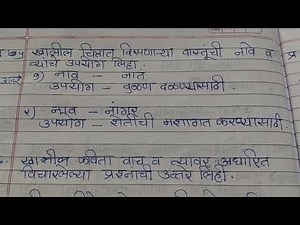 प्र ७५ खालील चित्रात दिसणाऱ्या वास्तूंची नावे व
त्यांचे उपयोग लिहा.
उत्तर १) नाव – जात
उपयोग – दळण दळण्यासाठी.
२) नाव – नांगर
उपयोग – शेतीची मशागत करण्यासाठी.
खालील कविता वाच व त्यावर आधारित
विचारलेल्या प्रश्नांची उत्तरे लिही.